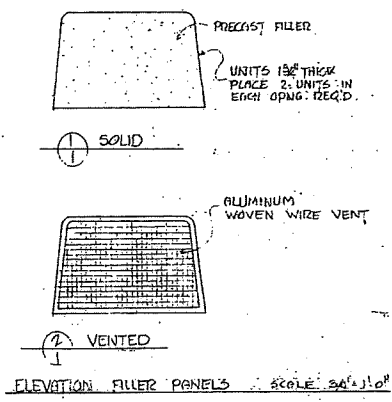 PRECAST FILLER
UNITS 1¾" THICK
PLACE 2 UNITS IN
EACH OPNG. REQ'D.
1
1
SOLID
ALUMINUM
WOVEN WIRE VENT
2
1
VENTED
ELEVATION FILLER PANELS SCALE 3/4" = 1'-0"